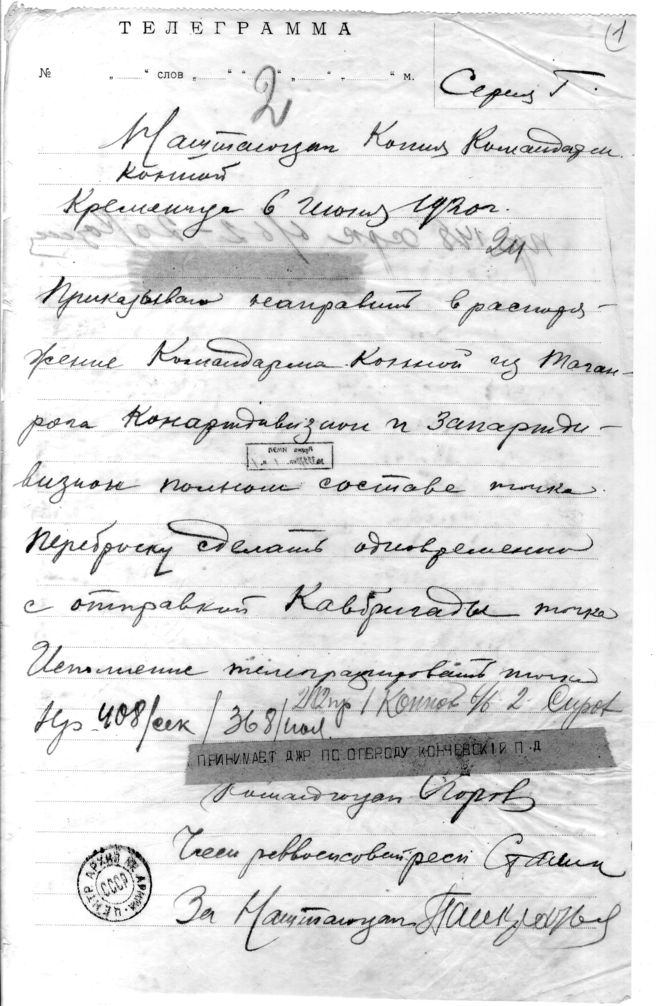 ТЕЛЕГРАММА
1
№ „ “ слов „ “ “ “ „ “ „ “ м.
2
Серия Г.
Наштаюзап Копия Командарм
Конной
Кременчуга 6 Июня 1920 г.
24
Приказываю направить в распоря-
жение Командарма Конной из Таган-
рога Конартдивизион и Запартди-
визион полном составе точка
Переброску сделать одновременно
с отправкой Кавбригады точка
Исполнение телеграфировать точка
Нр 408/сек / 368/пол
ПРИНИМАЕТ ДЖР ПО ОГВРОДУ КОНЧЕВСКІЙ П Д
Командюзап Егоров
Член реввоенсовета Сталин
За Наштаюзап
ЦЕНТР АРХИВ КР АРМИИ
СССР